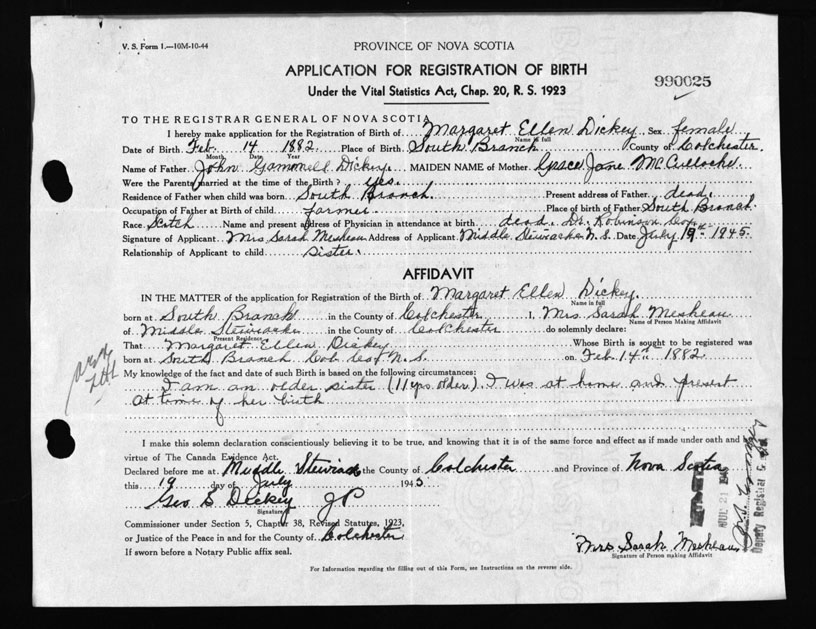 V. S. Form 1.—10M-10-44
PROVINCE OF NOVA SCOTIA
APPLICATION FOR REGISTRATION OF BIRTH
990025
Under the Vital Statistics Act, Chap. 20, R. S. 1923
TO THE REGISTRAR GENERAL OF NOVA SCOTIA
I hereby make application for the Registration of Birth of Margaret Ellen Dickey Sex female
Name in full
Date of Birth Feb. 14 1882 Place of Birth South Branch County of Colchester.
Month Date Year
Name of Father John Dickey. MAIDEN NAME of Mother Grace Jane
Were the Parents married at the time of the Birth? yes.
Residence of Father when child was born South Branch Present address of Father dead.
Occupation of Father at Birth of child farmer Place of birth of Father South Branch.
Race Scotch Name and present address of Physician in attendance at birth dead. Dr. Robinson
Signature of Applicant Mrs Sarah Meskeau Address of Applicant Middle Stewiacke N. S. Date July 19th 1945.
Relationship of Applicant to child sister.
AFFIDAVIT
IN THE MATTER of the application for Registration of the Birth of Margaret Ellen Dickey.
Name in full
born at South Branch in the County of Colchester I, Mrs. Sarah Meskeau
Name of Person Making Affidavit
of Middle Stewiacke in the County of Colchester do solemnly declare:
Present Residence
That Margaret Ellen Dickey Whose Birth is sought to be registered was
born at South Branch Col. Co. N. S. on Feb 14th 1882
My knowledge of the fact and date of such Birth is based on the following circumstances:
I am an older sister (11 yrs. older). I was at home and present
at time of her birth
I make this solemn declaration conscientiously believing it to be true, and knowing that it is of the same force and effect as if made under oath and by
virtue of The Canada Evidence Act.
Declared before me at Middle the County of Colchester and Province of Nova Scotia
this 19 day of July 1945
Geo S Dickey JP
Signature
Commissioner under Section 5, Chapter 38, Revised Statutes, 1923,
or Justice of the Peace in and for the County of Colchester
If sworn before a Notary Public affix seal.
Mrs Sarah Meskeau
Signature of Person making Affidavit
For Information regarding the filling out of this Form, see Instructions on the reverse side.
Deputy Registrar G